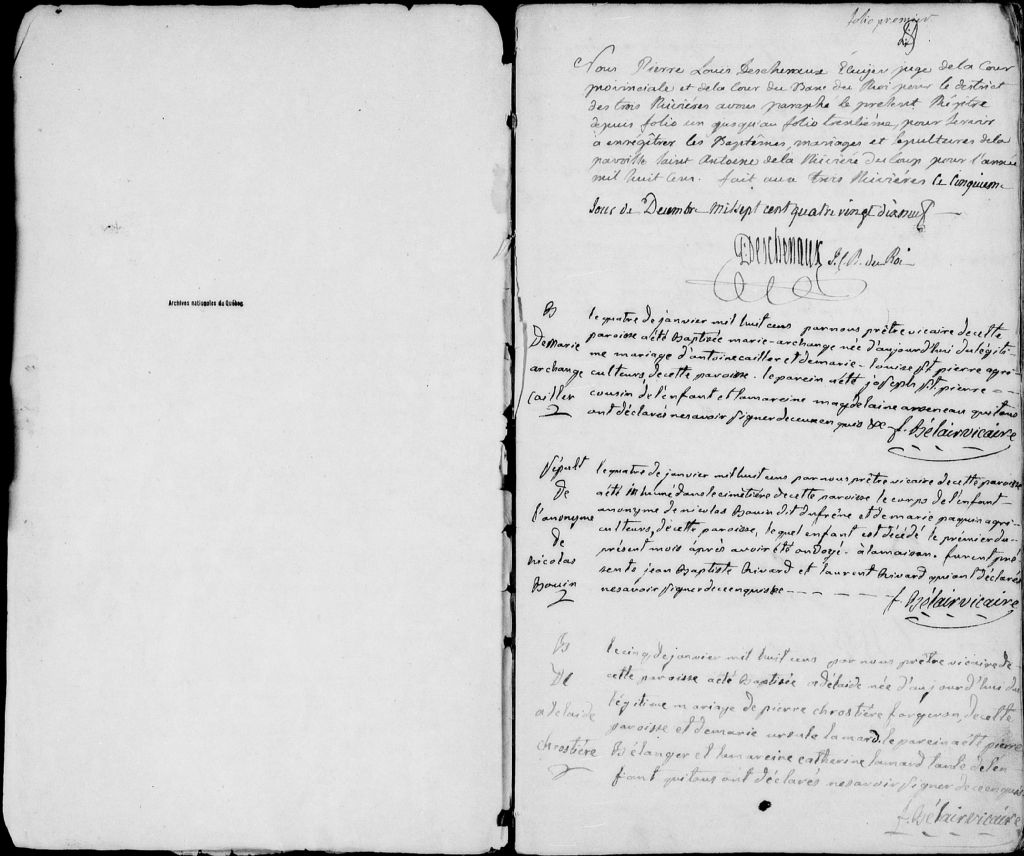 Archives nationales du Québec
folio premier
Nous Pierre Louis Deschenaux Ecuijer juge de la Cour
provinciale et de la Cour du Banc du Roi pour le district
des trois Rivières avons paraphé le présent Régitre
depuis folio un jusqu'au folio trentième, pour servir
a enrégîtrer les Baptêmes, mariages et sepultures de la
paroisse saint Antoine de la Rivière du Loup pour l'année
mil huit cens. fait aux trois Rivières Ce Cinquieme
Jour de Decembre Mil sept cent quatre vingt dixneuf
PDeschenaux J. C. B. du Roi
B
De marie
archange
Cailler
le quatre de janvier mil huit cens par nous prêtre vicaire de cette
paroisse a été Baptisée marie-archange née d'aujourd'hui du légiti-
me mariage d'antoine cailler et de marie-louise St. pierre agri-
culteurs de cette paroisse. le parein a été joseph St. pierre
cousin de l'enfant et la mareine magdelaine arseneau qui tous
ont déclarés ne savoir signer de ce enquis &c
f. Bélair vicaire
Sépult
De
l'anonyme
de
nicolas
Bouin
le quatre de janvier mil huit cens par nous prêtre vicaire de cette paroisse
a été inhumé dans le cimétière de cette paroisse le corps de l'enfant
anonyme de nicolas Bouin dit dufrêne et de marie paquin agri-
culteurs, de cette paroisse, lequel enfant est décédé le premier du
présent mois après avoir été ondoyé à la maison. furent pré
sents jean Baptiste Rivard et laurent Rivard qui ont déclarés
ne savoir signer de ce enquis &c
f. Bélair vicaire
B
De
adelaide
chrostière
le cinq de janvier mil huit cens par nous prêtre vicaire de
cette paroisse a été Baptisée adélaide née d'aujourd'hui du
légitime mariage de pierre chrostière forgeron, de cette
paroisse et de marie ursule lamard. le parein a été pierre
Bélanger et la mareine catherine lamard tante de l'en
fant qui tous ont déclarés ne savoir signer de ce enquis
f. Bélair vicaire